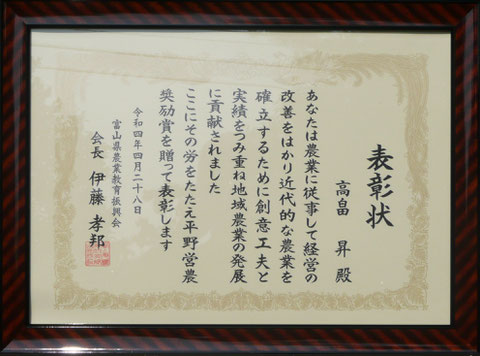 表彰状
高畠 昇 殿
あなたは農業に従事して経営の
改善をはかり近代的な農業を
確立するために創意工夫と
実績をつみ重ね地域農業の発展
に貢献されました
ここにその労をたたえ平野営農
奨励賞を贈って表彰します
令和四年四月二十八日
富山県農業教育振興会
会長 伊藤 孝邦